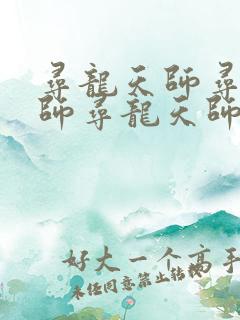 尋龍天師尋
師尋龍天師
好大一个高手
未经同意禁止转载